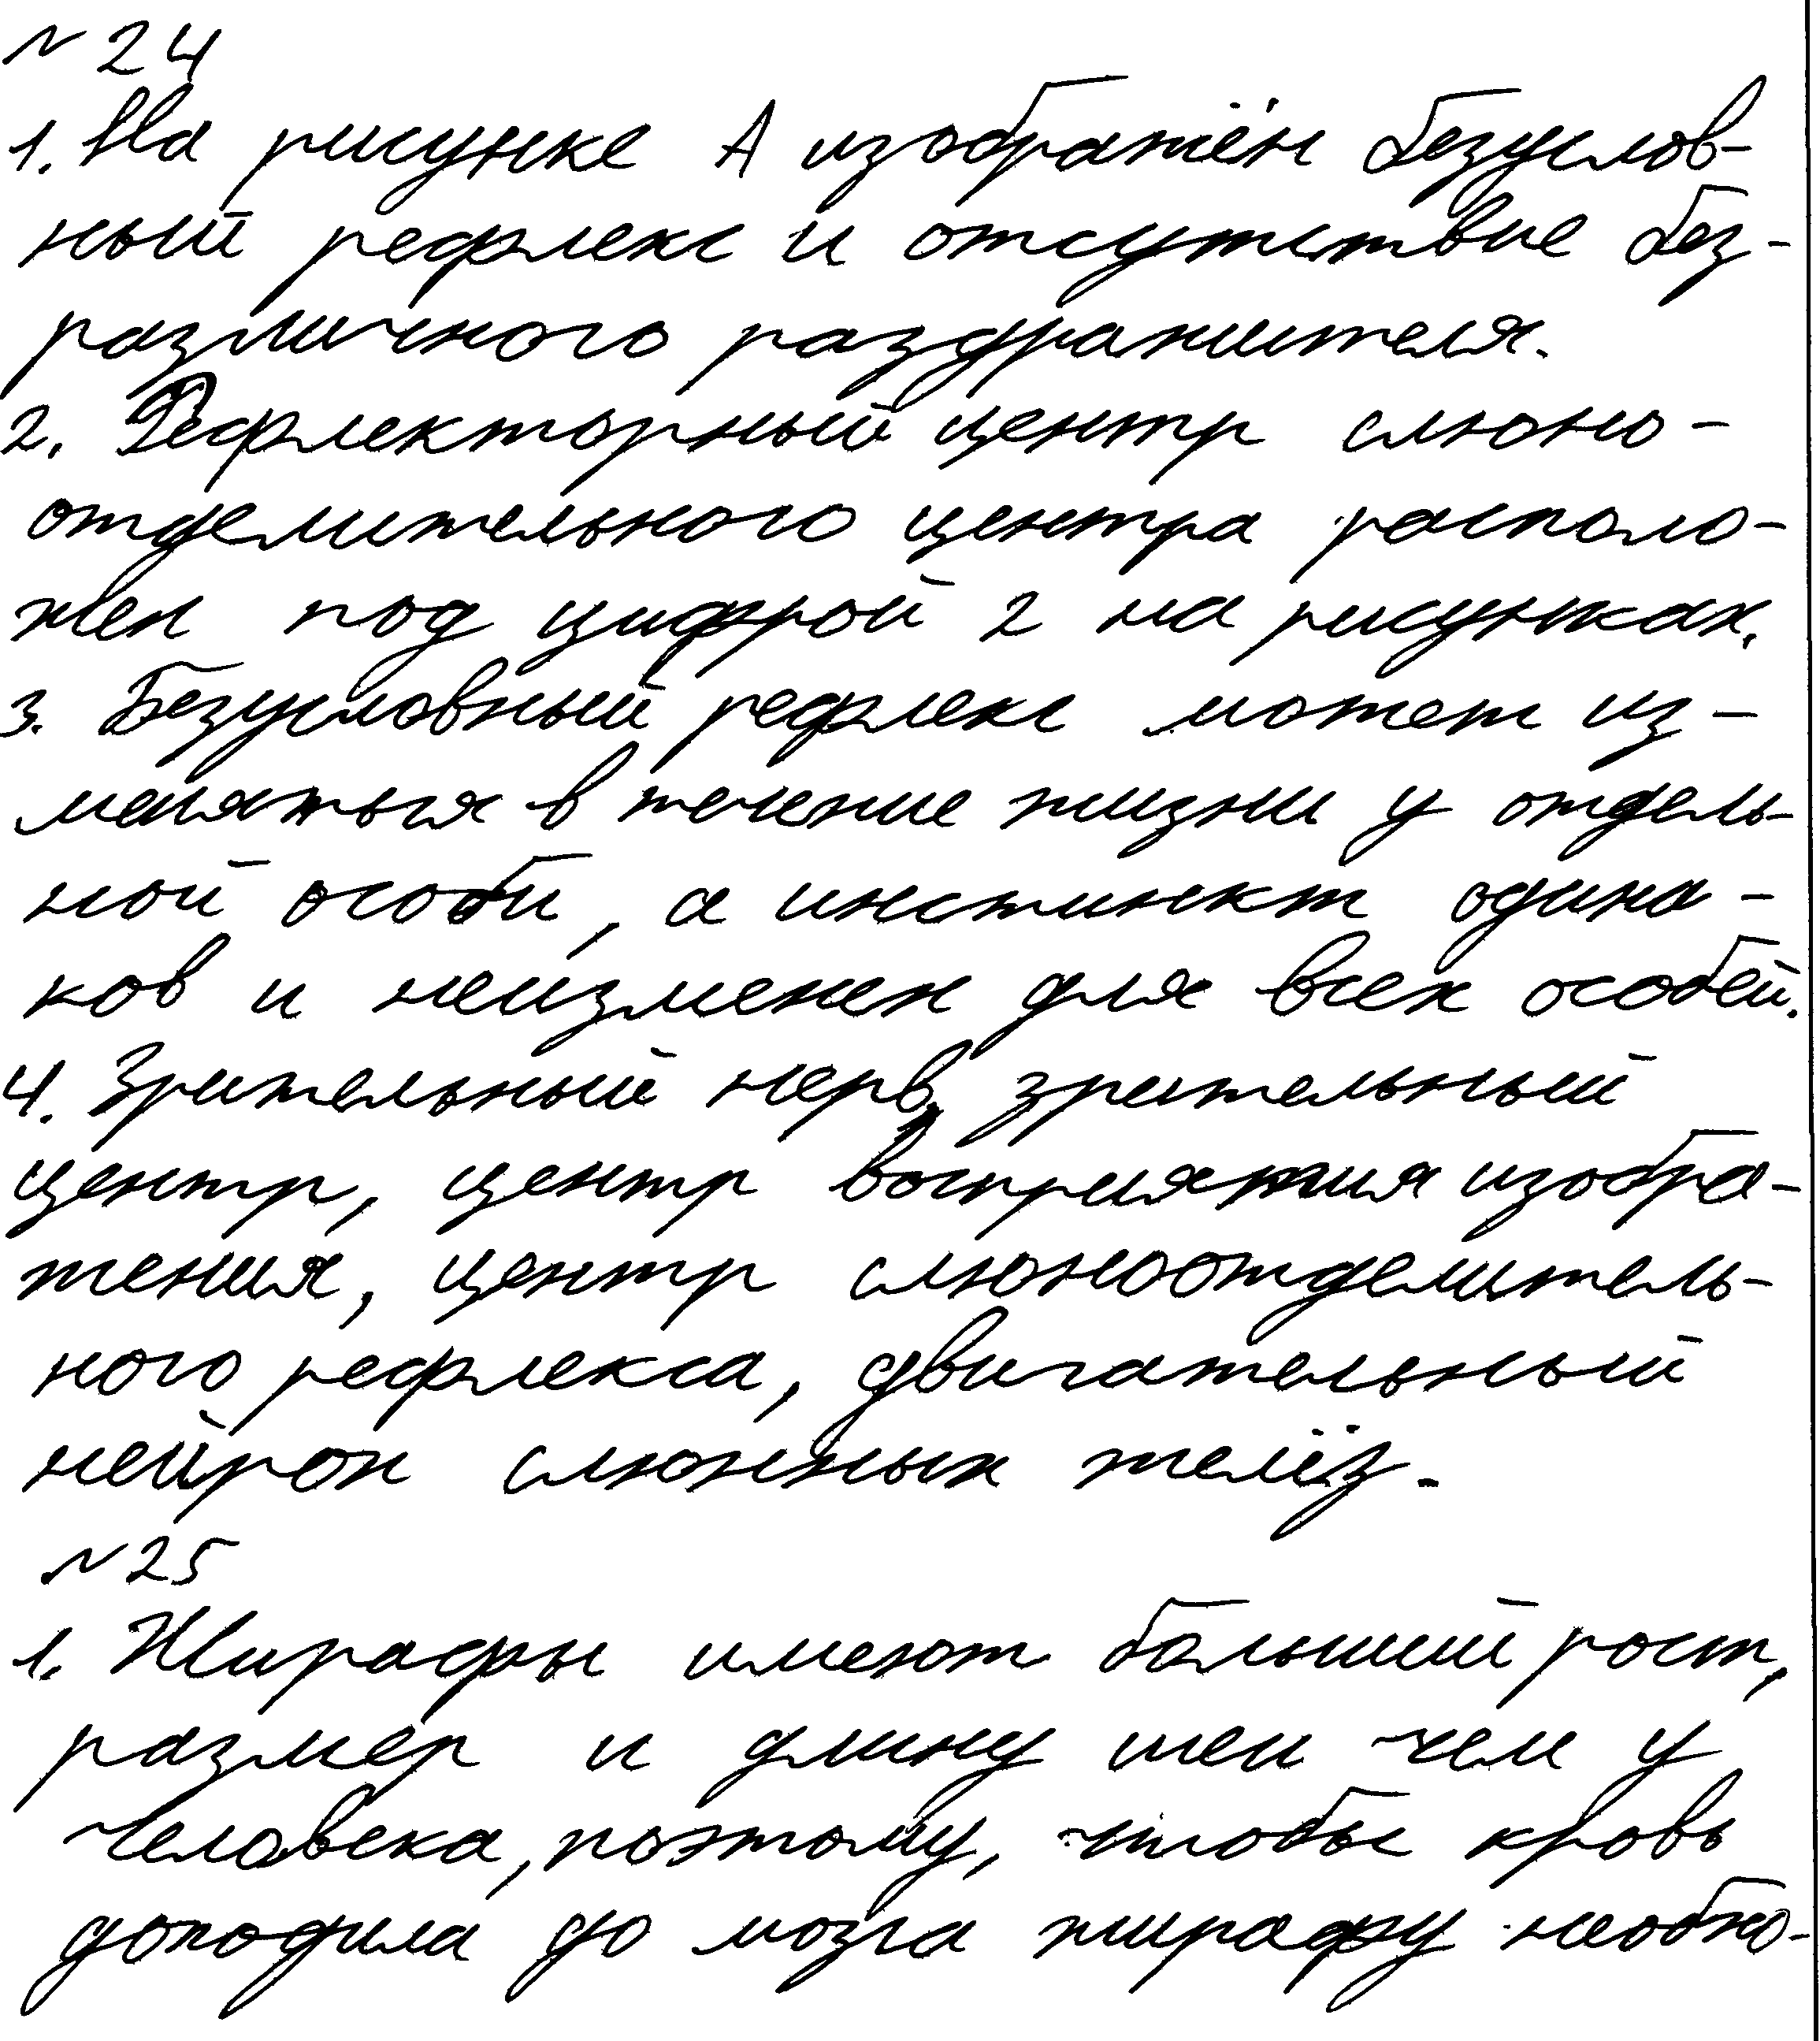 № 24
1. На рисунке А изображён безуслов-
ный рефлекс и отсутствие без-
различного раздражителя.
2. Рефлекторный центр слюно-
отделительного центра располо-
жен под цифрой 2 на рисунках.
3. Безусловный рефлекс может из-
меняться в течение жизни у отдель-
ной особи, а инстинкт одина-
ков и неизменен для всех особей.
4. Зрительный нерв, зрительный
центр, центр восприятия изобра-
жения, центр слюноотделитель-
ного рефлекса, двигательный
нейрон слюнных желёз.
№ 25
1. Жирафы имеют больший рост,
размер и длину шеи чем у
человека, поэтому, чтобы кровь
доходила до мозга жирафу необхо-